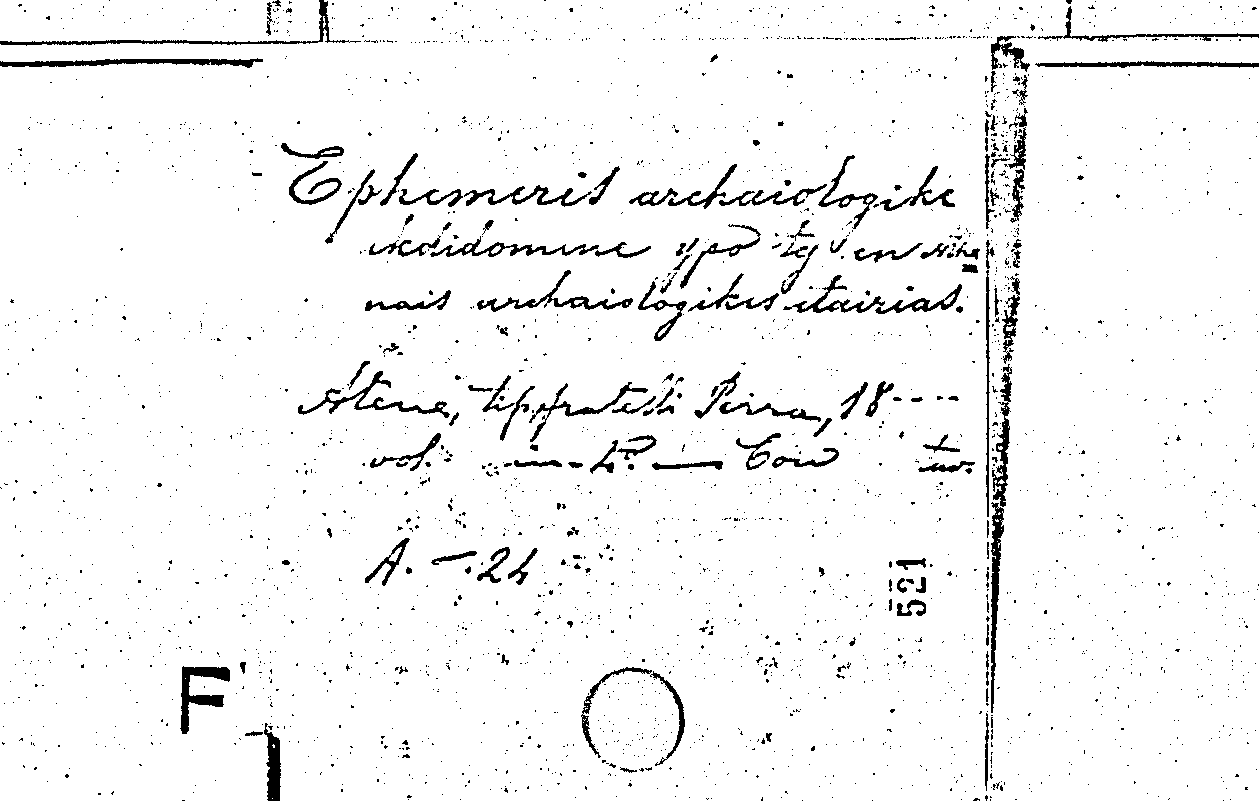 Ephemeris archaiologike
ekdidomene ypo tę en Athe
nais archaiologikes etairias.
Atene, tip. fratelli Perra, 18----
vol. in-4º. — Con tav.
A. — . 24
521
F